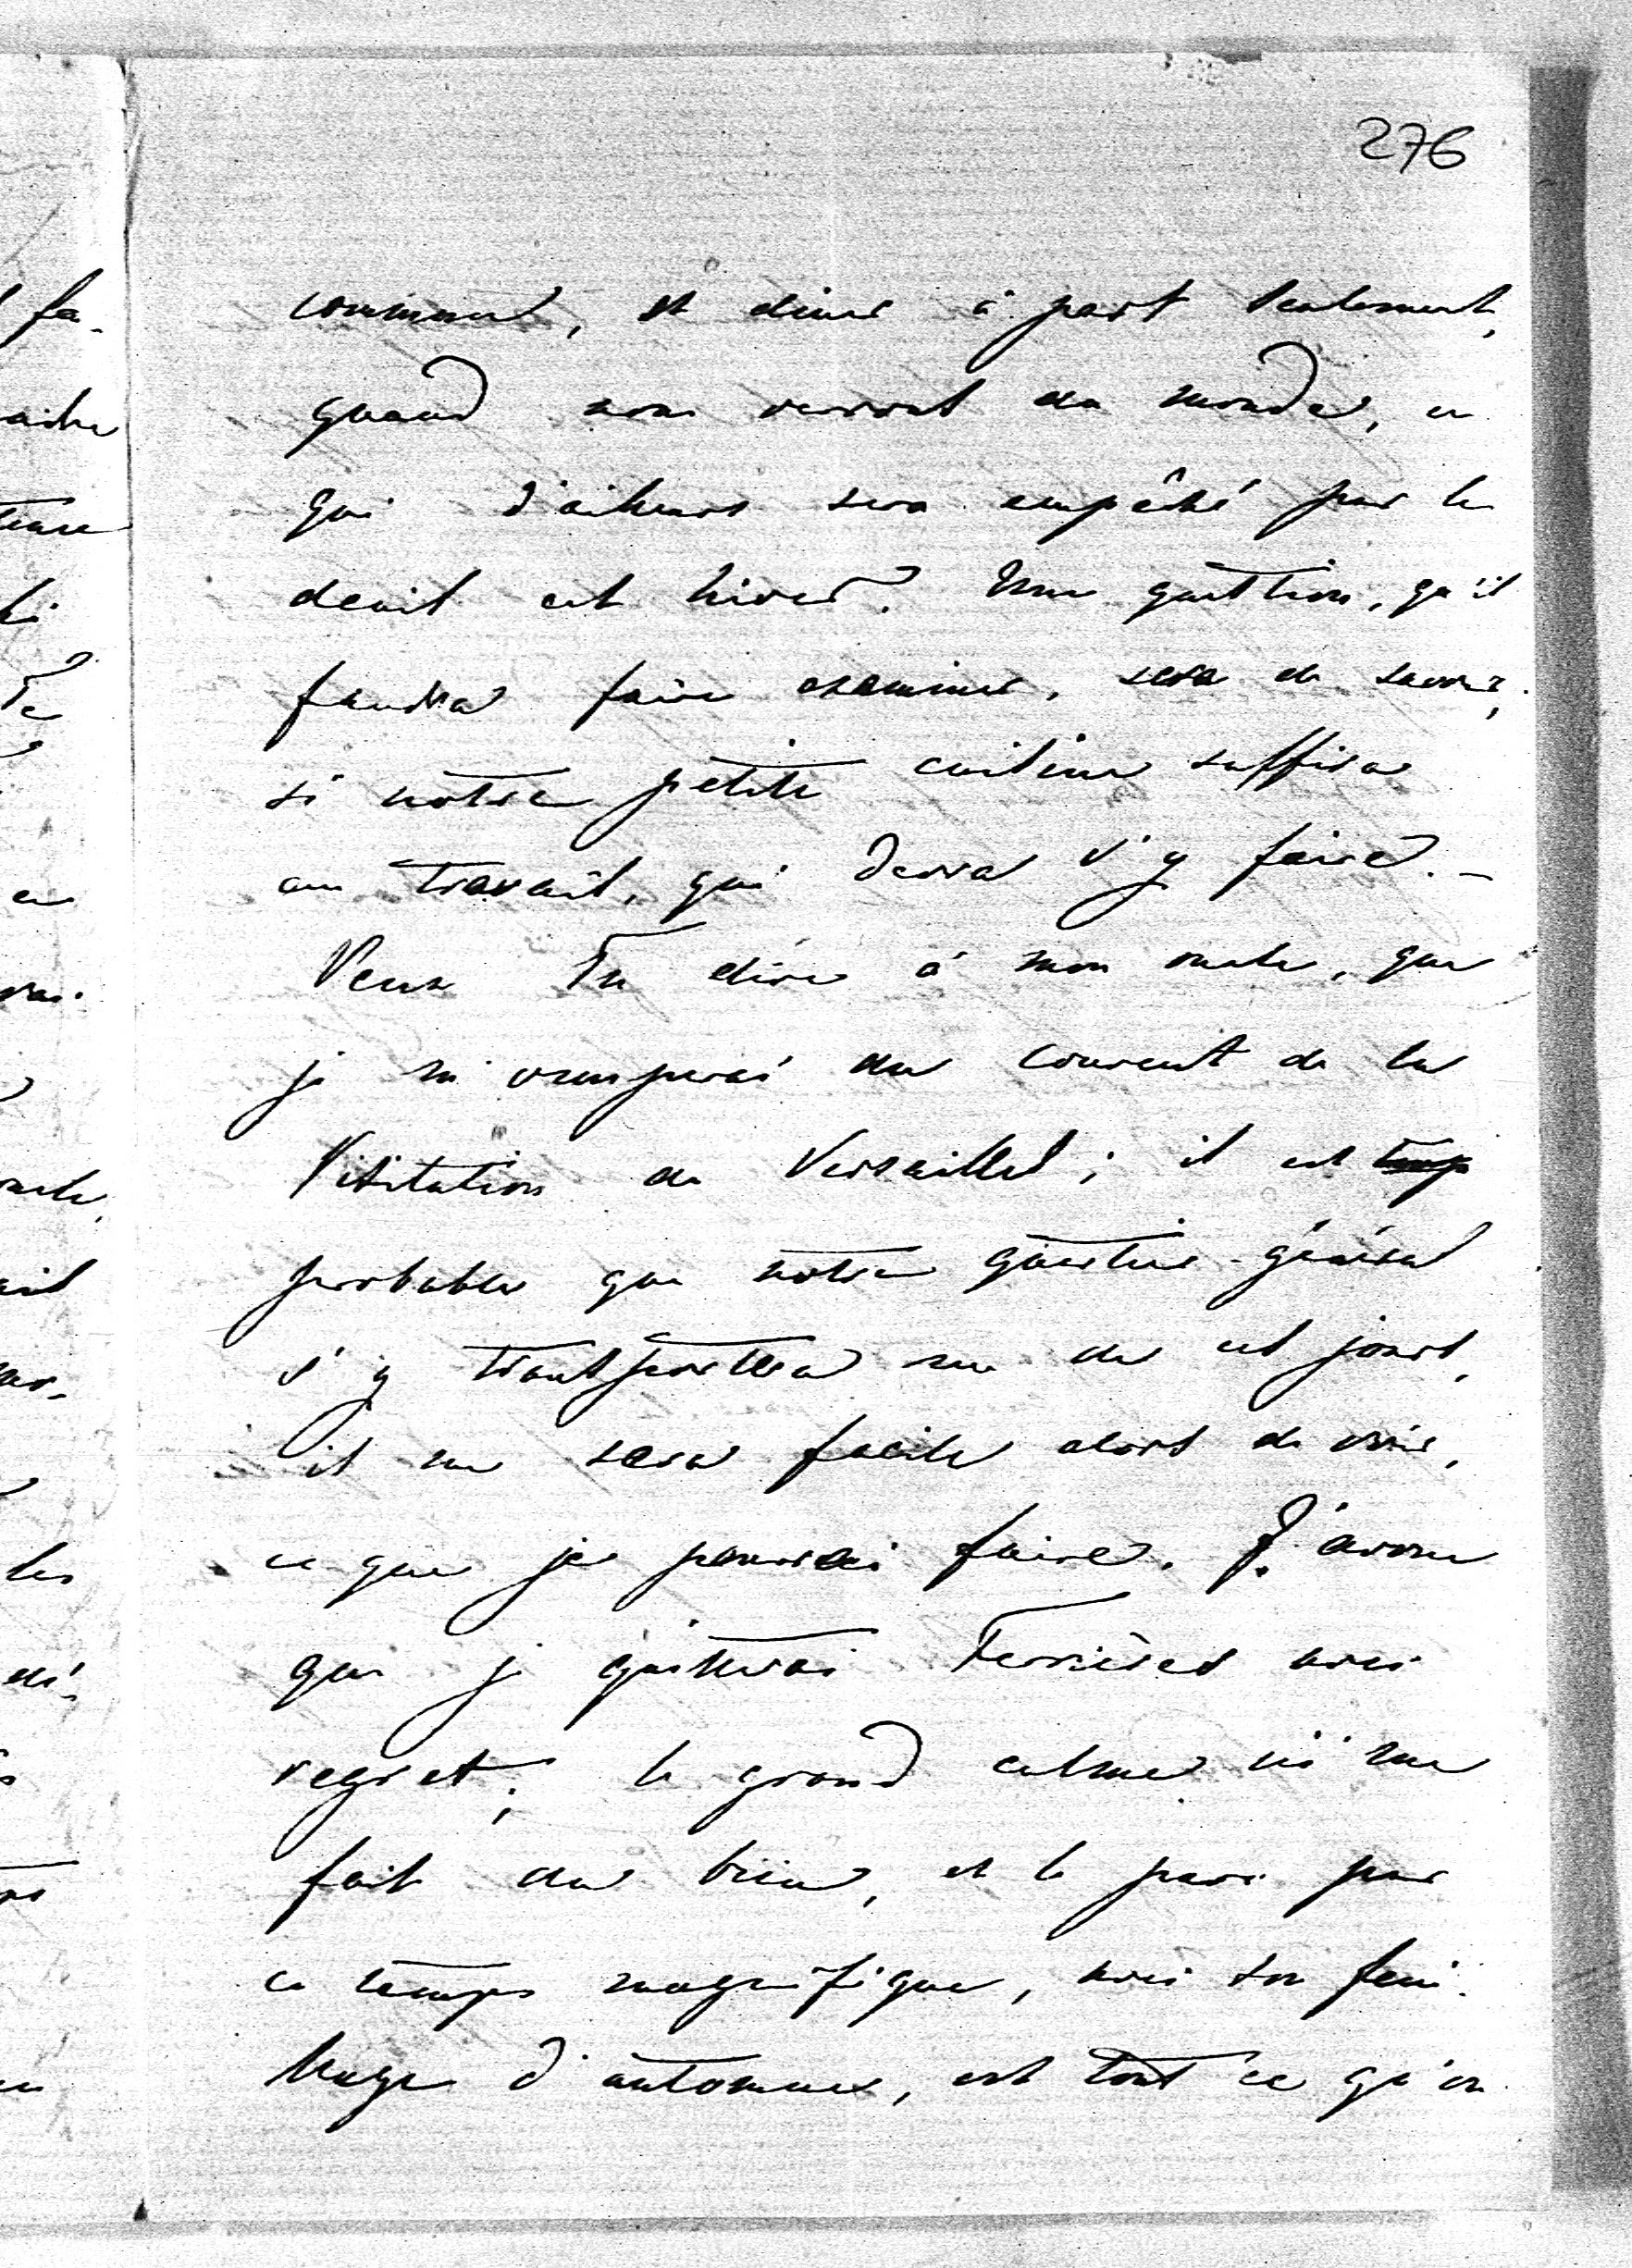 276
commun, et diner à part seulement,
quand nous verrons du monde, ce
qui d'ailleurs sera empêché par le
deuil cet hiver. Une question, qu'il
faudra faire examiner, sera de savoir,
si notre petite cuisine suffira
au travail, qui devra s'y faire. –
Veux Tu dire à mon oncle, que
je m'occuperai du couvent de la
Visitation de Versailles; il est
probable que notre quartier-général
s'y transportera un de ces jours,
il me sera facile alors de voir,
ce que je pourrai faire. J'avoue
que je quitterai Ferrières avec
regret; le grand calme ici me
fait du bien, et le parc par
ce temps magnifique, avec son feuil-
lage d'automne, est tout ce qu'on